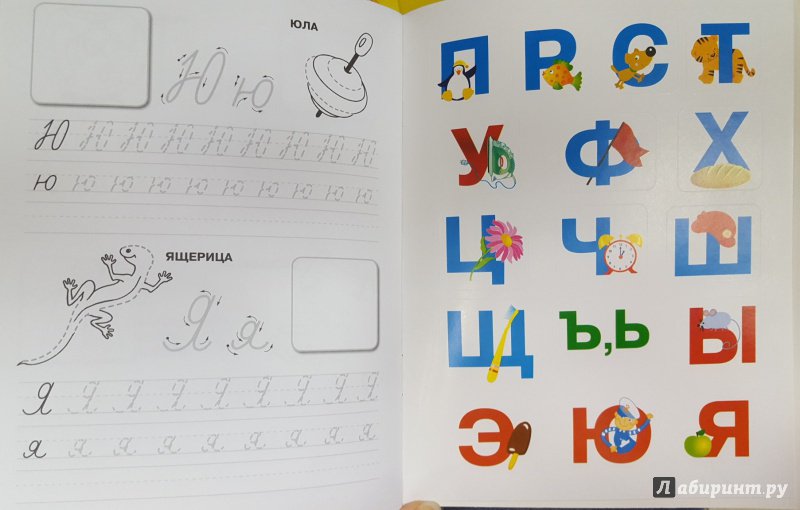 ЮЛА
Ю ю
Ю Ю Ю Ю Ю Ю Ю Ю Ю
ю ю ю ю ю ю ю ю ю
ЯЩЕРИЦА
Я я
Я Я Я Я Я Я Я Я
я я я я я я я я я
П Р С Т
У Ф Х
Ц Ч Ш
Щ Ъ,Ь Ы
Э Ю Я
Лабиринт.ру